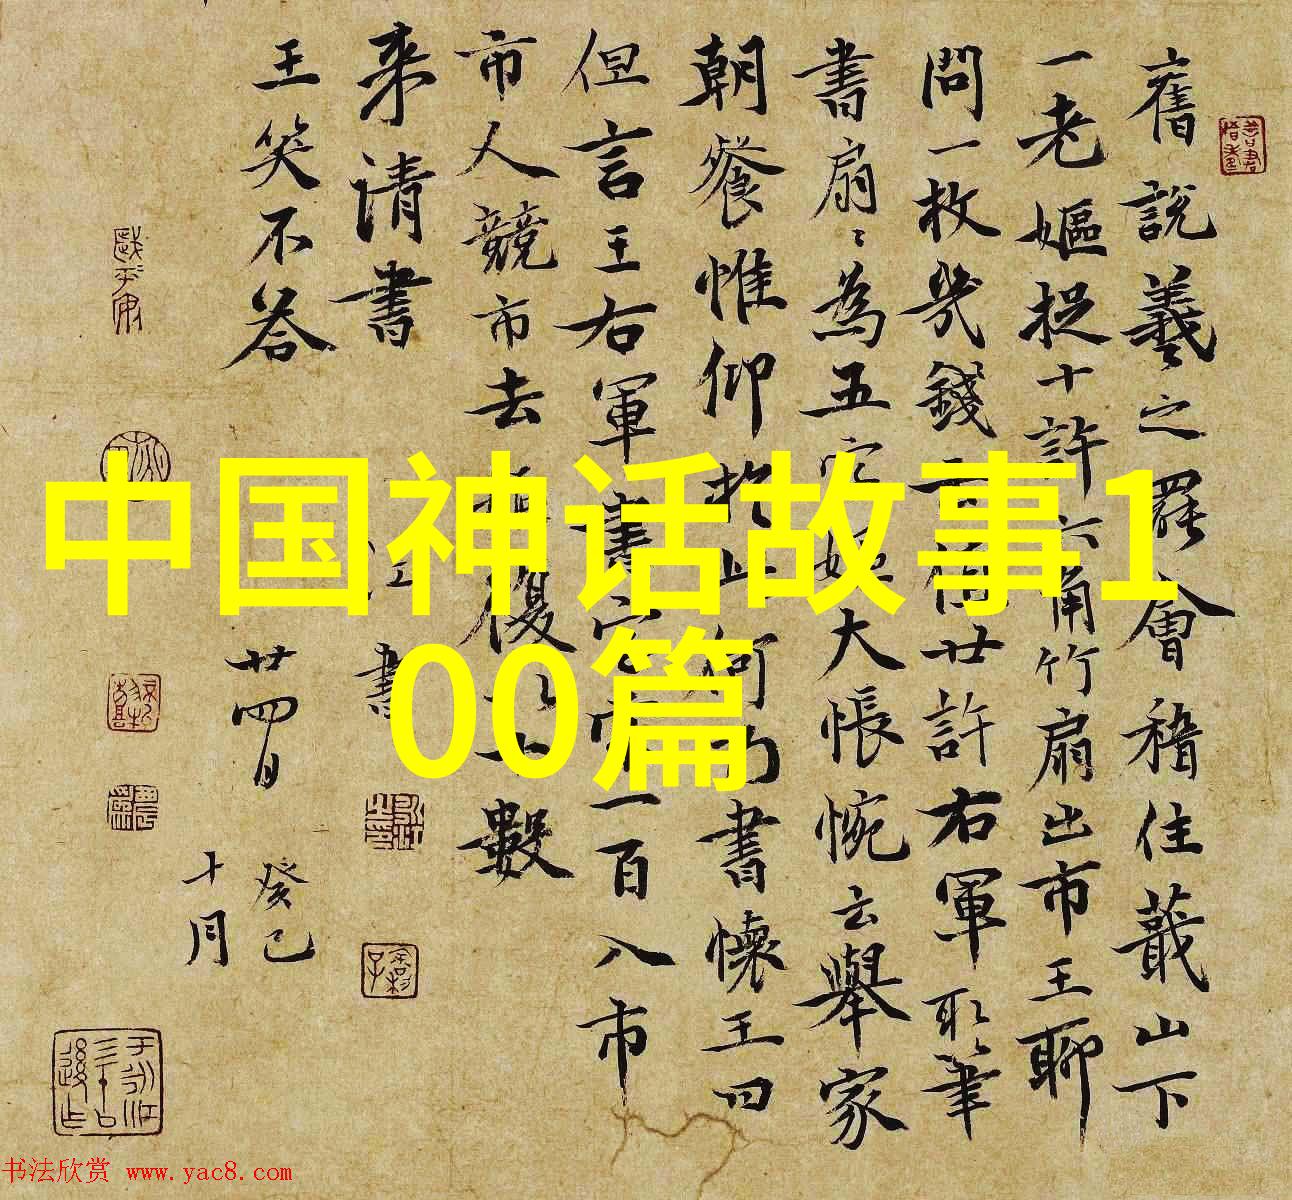 中国神话故事1
00篇
舊說羲之罷會稽住蕺山下
一老嫗捉十許六角竹扇出市王聊
問一枚幾錢云値廿許右軍取筆
書扇〻為五字嫗大悵惋云舉家
朝餐惟仰於此何乃書懷王曰
但言王右軍書字索一百入市
市人競市去姥復以十數
来請書
王笑不答
江書
廿四日
癸巳
十月
书法欣赏 www.yac8.com